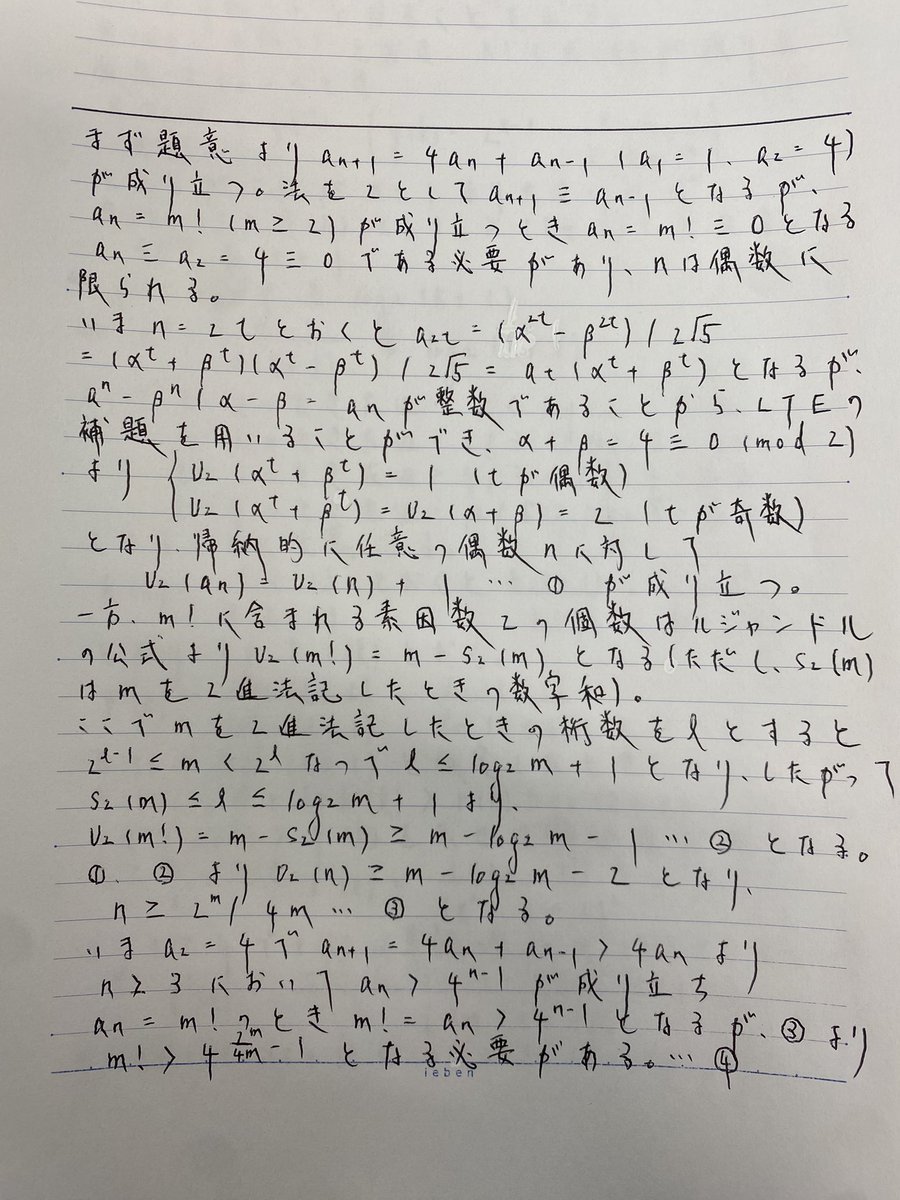 まず題意より an+1 = 4an + an-1 (a1 = 1、a2 = 4)
が成り立つ。法を2として an+1 ≡ an-1 となるが、
an = m! (m ≥ 2) が成り立つとき an = m! ≡ 0 となる
an ≡ a2 = 4 ≡ 0 である必要があり、nは偶数に
限られる。
いま n = 2t とおくと a2t = (α^2t - β^2t) / 2√5
= (α^t + β^t)(α^t - β^t) / 2√5 = at (α^t + β^t) となるが、
α^n - β^n / α - β = an が整数であることから、LTEの
補題を用いることができ、α + β = 4 ≡ 0 (mod 2)
より { v2 (α^t + β^t) = 1 (tが偶数)
v2 (α^t + β^t) = v2 (α + β) = 2 (tが奇数)
となり、帰納的に任意の偶数nに対して
v2 (an) = v2 (n) + 1 … ① が成り立つ。
一方、m! に含まれる素因数2の個数はルジャンドル
の公式より v2 (m!) = m - s2 (m) となる(ただし、s2 (m)
はmを2進法記したときの数字和)。
ここでmを2進法記したときの桁数をlとすると
2^l-1 ≤ m < 2^l なので l ≤ log2 m + 1 となり、したがって
s2 (m) ≤ l ≤ log2 m + 1 より、
v2 (m!) = m - s2 (m) ≥ m - log2 m - 1 … ② となる。
①、② より v2 (n) ≥ m - log2 m - 2 となり、
n ≥ 2^m / 4m … ③ となる。
いま a2 = 4 で an+1 = 4an + an-1 > 4an より
n ≥ 3 において an > 4^n-1 が成り立ち
an = m! のとき m! = an > 4^n-1 となるが、③ より
m! > 4^(2^m/4m - 1) となる必要がある。… ④
ieben